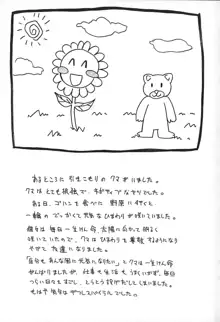 あるところに引きこもりのクマがいました。
クマはとても孤独で、ネガティブなヤツでした。
ある日、ゴハンを食べに野原に行くと
一輪のでっかくて元気なひまわりが咲いていました。
彼女は毎日一生けん命、太陽に向かって明るく
咲いていたので、クマはひまわりを尊敬するようになり
そして友達になりました。
「自分もあんな風に元気になりたい」とクマは一生けん命
がんばりましたが、仕事も生活もうまくいかず、毎日
つらい日々をすごして、とうとう